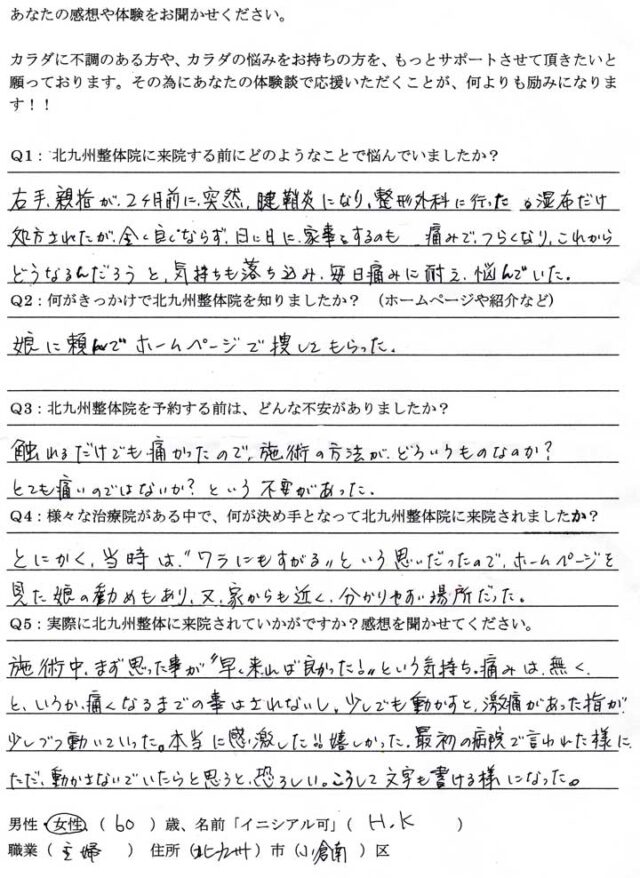 あなたの感想や体験をお聞かせください。
カラダに不調のある方や、カラダの悩みをお持ちの方を、もっとサポートさせて頂きたいと
願っております。その為にあなたの体験談で応援いただくことが、何よりも励みになりま
す！！
Q1：北九州整体院に来院する前にどのようなことで悩んでいましたか？
右手、親指が、2ヶ月前に、突然、腱鞘炎になり、整形外科に行った 湿布だけ
処方されたが、全く良くならず、日に日に、家事をするのも 痛みで、つらくなり、これから
どうなるんだろうと、気持ちも落ち込み、毎日痛みに耐え、悩んでいた。
Q2：何がきっかけで北九州整体院を知りましたか？ （ホームページや紹介など）
娘に頼んでホームページで捜してもらった。
Q3：北九州整体院を予約する前は、どんな不安がありましたか？
触れるだけでも痛かったので、施術の方法が、どういうものなのか？
とても痛いのではないか？という不安があった。
Q4：様々な治療院がある中で、何が決め手となって北九州整体院に来院されましたか？
とにかく、当時は、〝ワラにもすがる〟という思いだったので、ホームページを
見た娘の勧めもあり、又、家からも近く、分かりやすい場所だった。
Q5：実際に北九州整体に来院されていかがですか？感想を聞かせてください。
施術中、まず思った事が〝早く来れば良かった！〟という気持ち。痛みは、無く、
と、いうか、痛くなるまでの事はされないし、少しでも動かすと、激痛があった指が
少しづつ動いていった。本当に感激した!!嬉しかった。最初の病院で言われた様に、
ただ、動かさないでいたらと思うと、恐ろしい。こうして文字も書ける様になった。
男性・女性、（ 60 ）歳、名前「イニシアル可」（ H.K ）
職業（ 主婦 ） 住所（北九州）市（小倉南）区